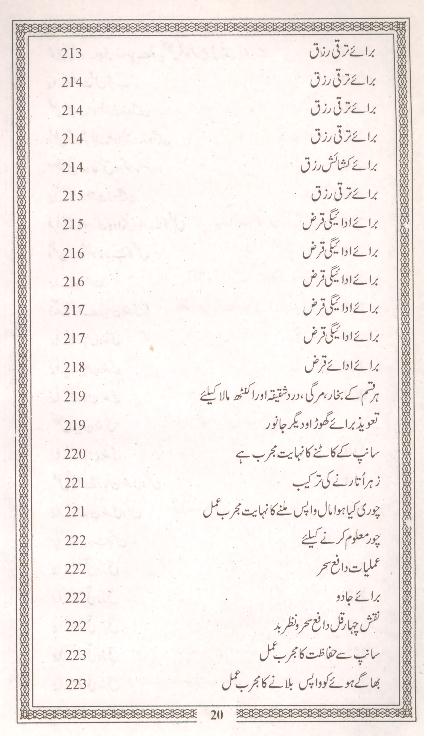 برائے ترقی رزق 213
برائے ترقی رزق 214
برائے ترقی رزق 214
برائے ترقی رزق 214
برائے کشائش رزق 214
برائے ترقی رزق 215
برائے ادائیگی قرض 215
برائے ادائیگی قرض 216
برائے ادائیگی قرض 216
برائے ادائیگی قرض 217
برائے ادائیگی قرض 217
برائے ادائے قرض 218
ہر قسم کے بخار، مرگی، درد شقیقہ اور اکنٹھ مالا کیلئے 219
تعویذ برائے گھوڑا و دیگر جانور 219
سانپ کے کاٹنے کا نہایت مجرب ہے 220
زہر اُتارنے کی ترکیب 221
چوری کیا ہوا مال واپس ملنے کا نہایت مجرب عمل 221
چور معلوم کرنے کیلئے 222
عملیات دافع سحر 222
برائے جادو 222
نقش چہار قل دافع سحر و نظر بد 222
سانپ سے حفاظت کا مجرب عمل 223
بھاگے ہوئے کو واپس بلانے کا مجرب عمل 223
20